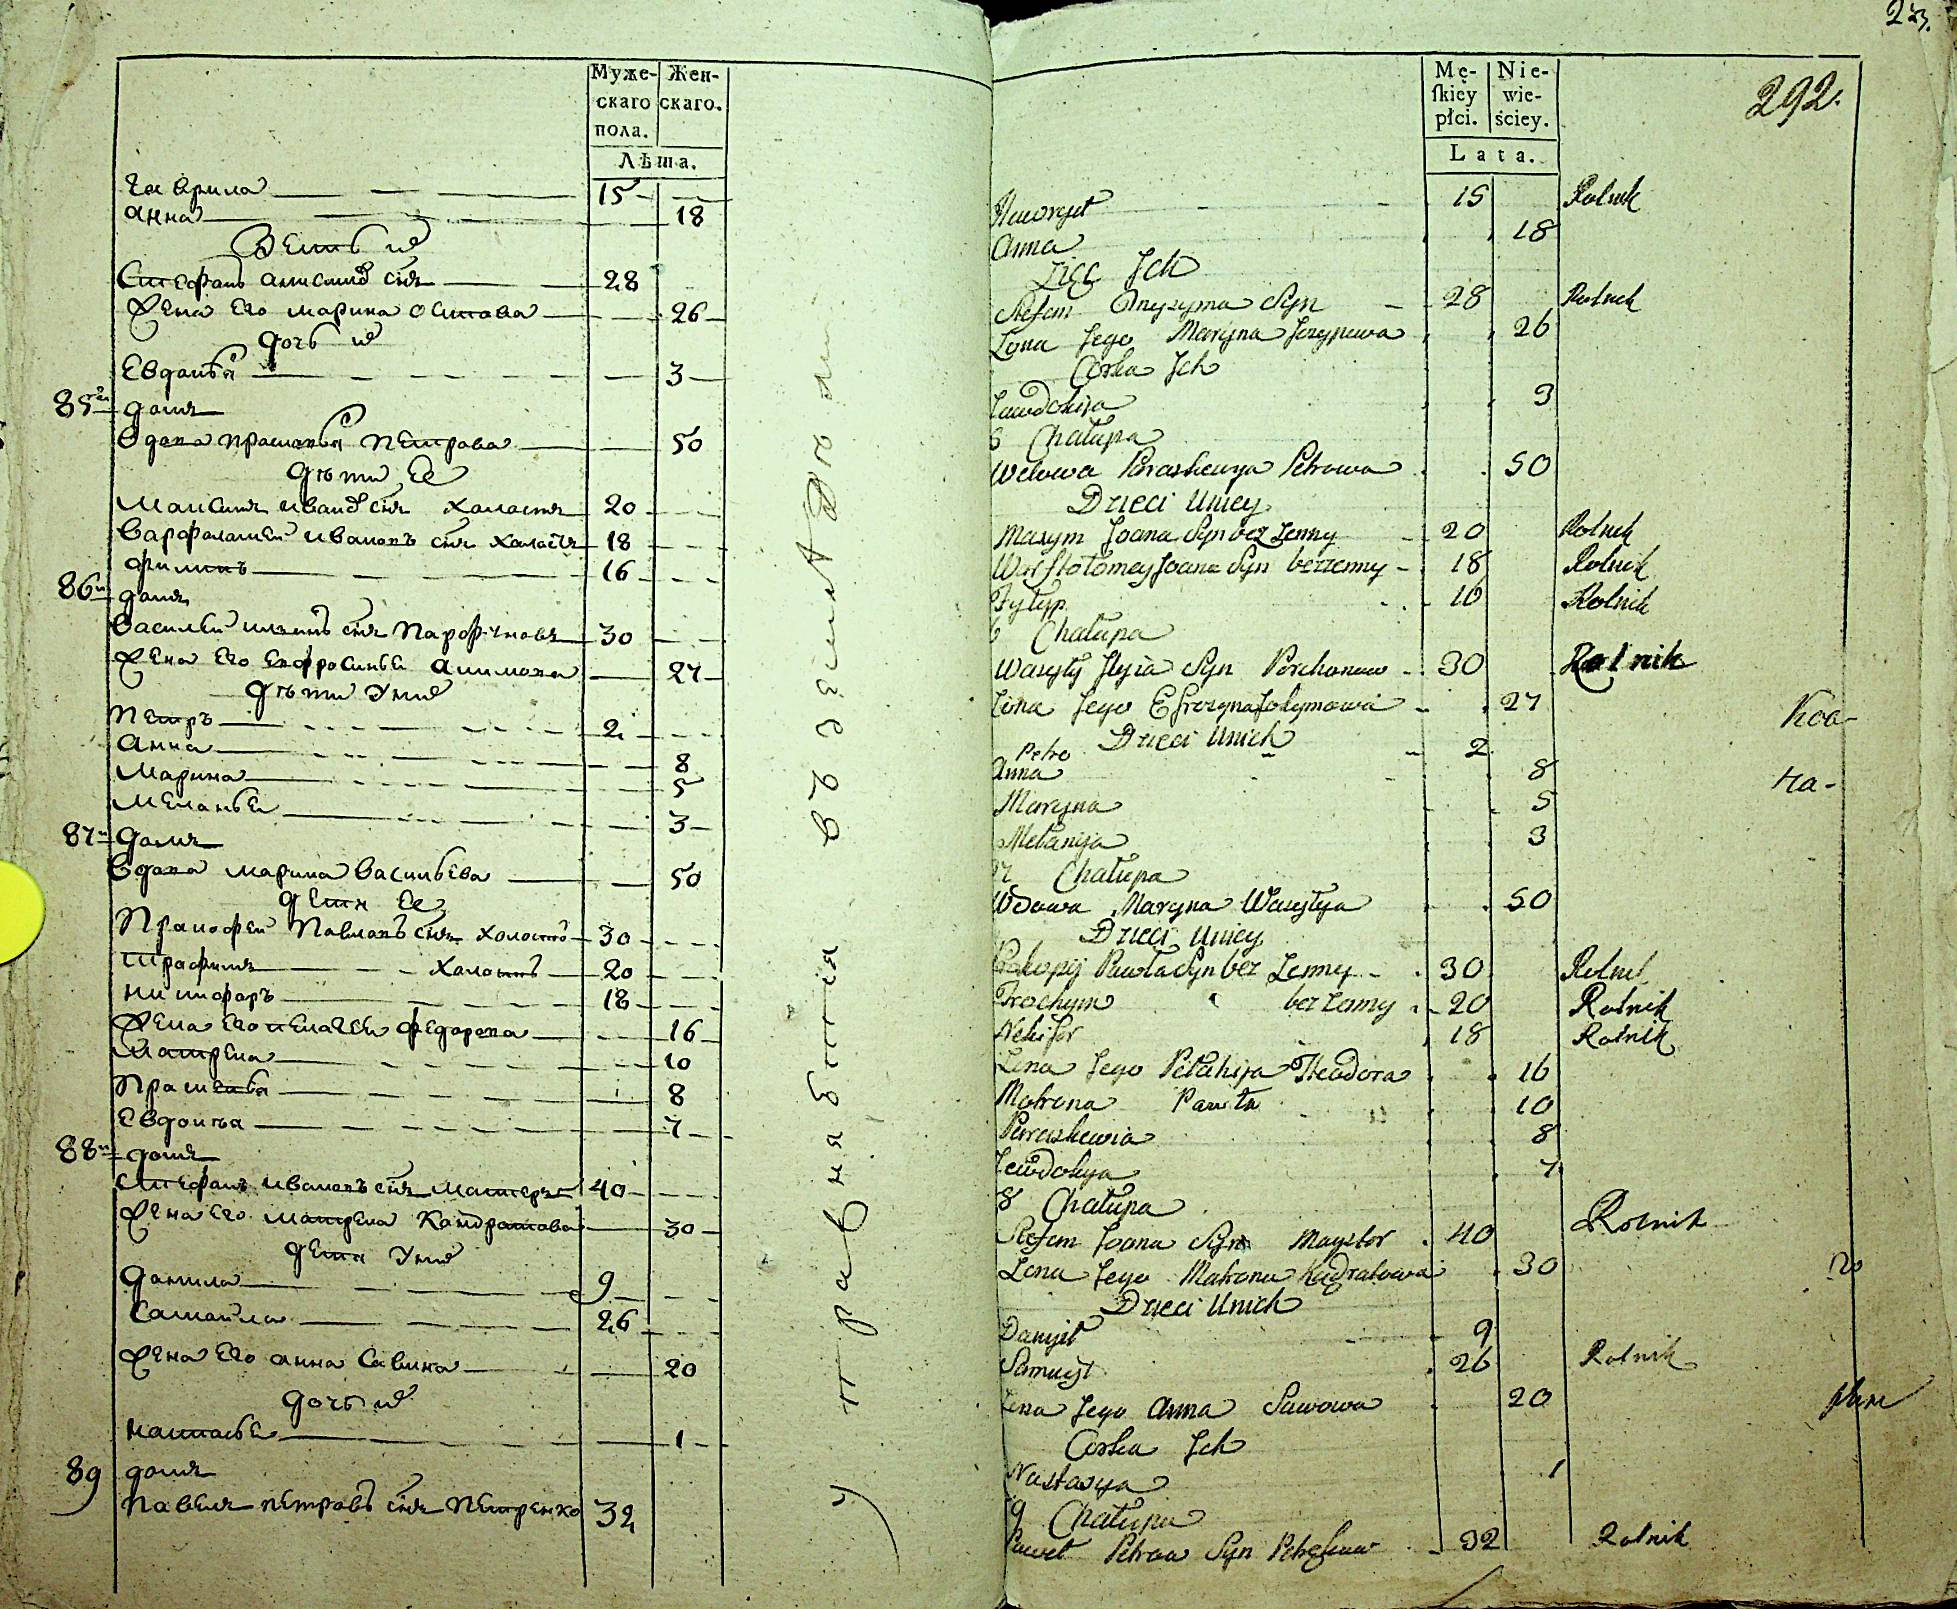 Муже-
скаго
пола.
Жен-
скаго.
Лѣта.
Гаврила 15
анна 18
Зять их
Стефанъ анисимов снъ 28
Жена Его марина осипова 26
дочь их
Евдокия 3
85 домъ
Вдова прасковья Петрова 50
дѣти Ее
Максимъ иванов снъ холостъ 20
Варфаламей ивановъ снъ холостъ 18
филипъ 16
86 домъ
Василей ильинъ снъ 30
Жена Его ефросинья акимова 27
дѣти у них
Петръ 2
Анна 8
Марина 5
Меланья 3
87 домъ
Вдова марина васильева 50
дети Ее
Прокофей Павловъ снъ холостъ 30
трофимъ холостъ 20
никифоръ 18
Жена Его пелагея федорова 16
Матрена 10
Прасковья 8
Евдокия 7
88 домъ
Стефанъ ивановъ снъ 40
Жена Его матрена Кондратова 30
дети у них
данила 9
Самойла 26
Жена Его анна Савина 20
дочь их
настасья 1
89 домъ
Павелъ петровъ снъ Петренко 32
23.
292.
Mę-
skiey
płci.
Nie-
wie-
ściey.
Lata.
Hawryło 15 Rolnik
Anna 18
Zięć Ich
Stefan Onyzyma Syn 28 Rolnik
Zona Jego Maryna Jozypowa 26
Corka Ich
Jewdokija 3
Chałupa
Wdowa Paraskewya Petrowa 50
Dzieci Uniey
Maxym Joana Syn bez Zenny 20 Rolnik
Joana Syn bezzenny 18 Rolnik
Fyłyp 16 Rolnik
6 Chałupa
Wasyły Ilyia Syn 30 Rolnik
Zona Jego Efrozyna 27
Dzieci Unich
Petro 2
Anna 8
Maryna 5
Melanija 3
Chałupa
Wdowa Maryna Wasyłya 50
Dzieci Uniey
Prokopij Pawła Syn bez Zenny 30 Rolnik
Trochym bez Zenny 20 Rolnik
Nekifor 18 Rolnik
Zona Jego Pełahija Theodora 16
Motrona Pawła 10
Paraskewia 8
Jewdokya 7
8 Chałupa
Stefan Joana Syn Maystor 40 Rolnik
Zona Jego Motrona 30
Dzieci Unich
Danyił 9
Samuył 26 Rolnik
Zona Jego Anna Sawowa 20
Corka Ich
Nastasya 1
9 Chałupa
Paweł Petra Syn 32 Rolnik